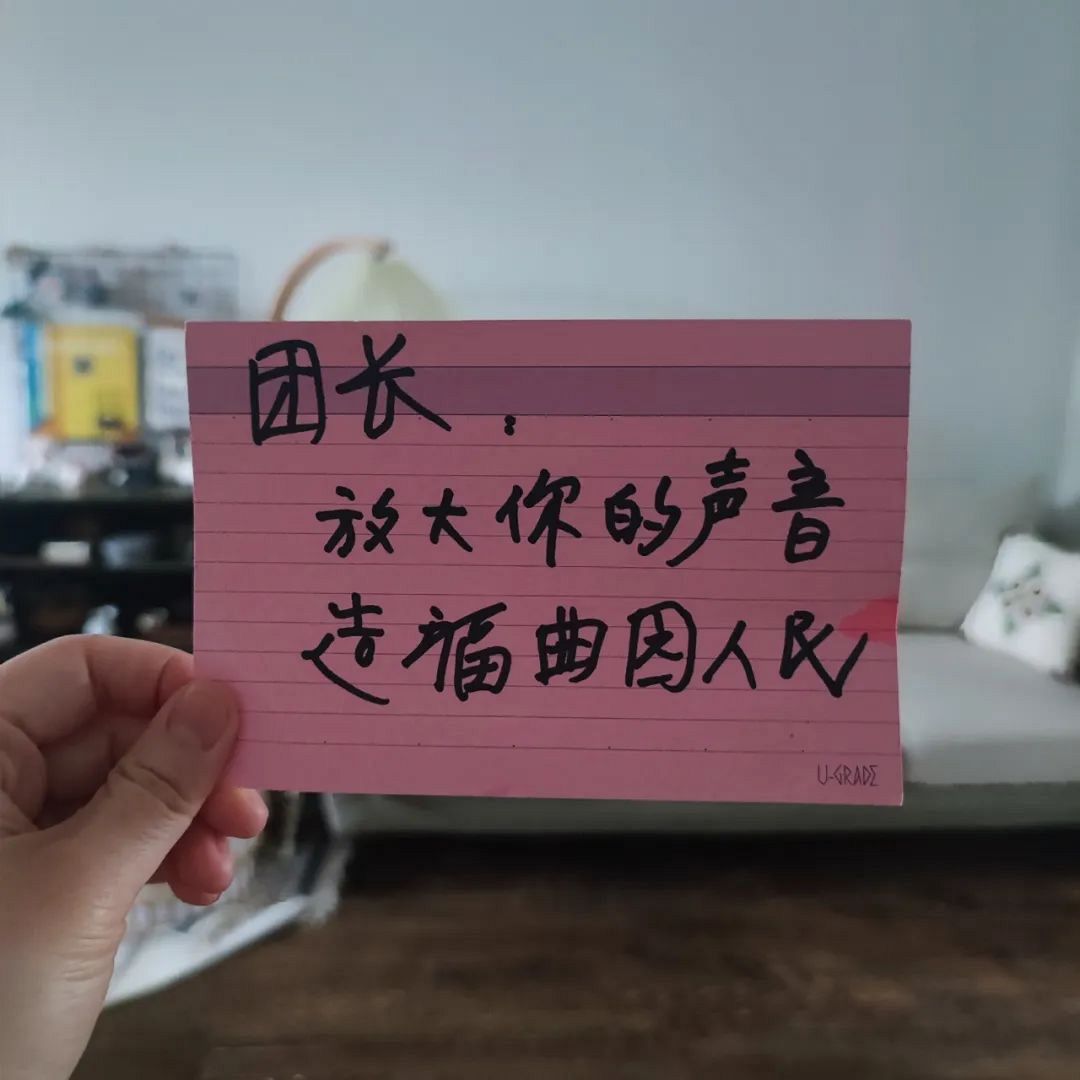 团长:
放大你的声音
造福曲因人民
U-GRADE